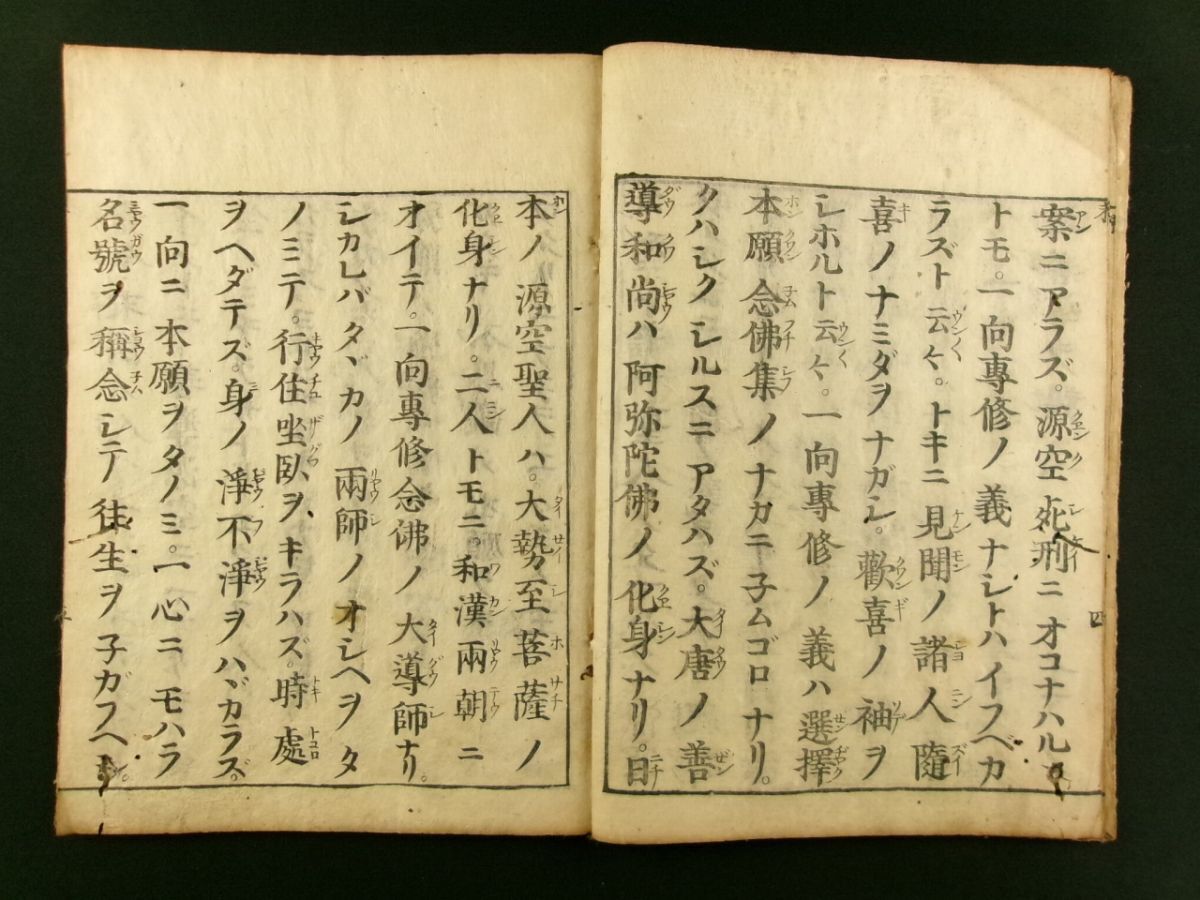 案ニアラズ。源空死刑ニオコナハル
トモ。一向專修ノ義ナシトハイフベカ
ラズト云々。トキニ見聞ノ諸人隨
喜ノナミダヲナガシ。歡喜ノ袖ヲ
シホルト云々。一向專修ノ義ハ選擇
本願念佛集ノナカニ子ムゴロナリ。
クハシクシルスニアタハズ。大唐ノ善
導和尚ハ阿弥陀佛ノ化身ナリ。日
四
本ノ源空聖人ハ。大勢至菩薩ノ
化身ナリ。二人トモニ。和漢兩朝ニ
オイテ。一向專修念佛ノ大導師ナリ。
シカレバタヾカノ兩師ノオシヘヲタ
ノミテ。行住坐臥ヲ、キラハズ。時處
ヲヘダテズ。身ノ淨不淨ヲハヾカラズ。
一向ニ本願ヲタノミ。一心ニモハラ
名號ヲ稱念シテ往生ヲ子ガフヘシ。